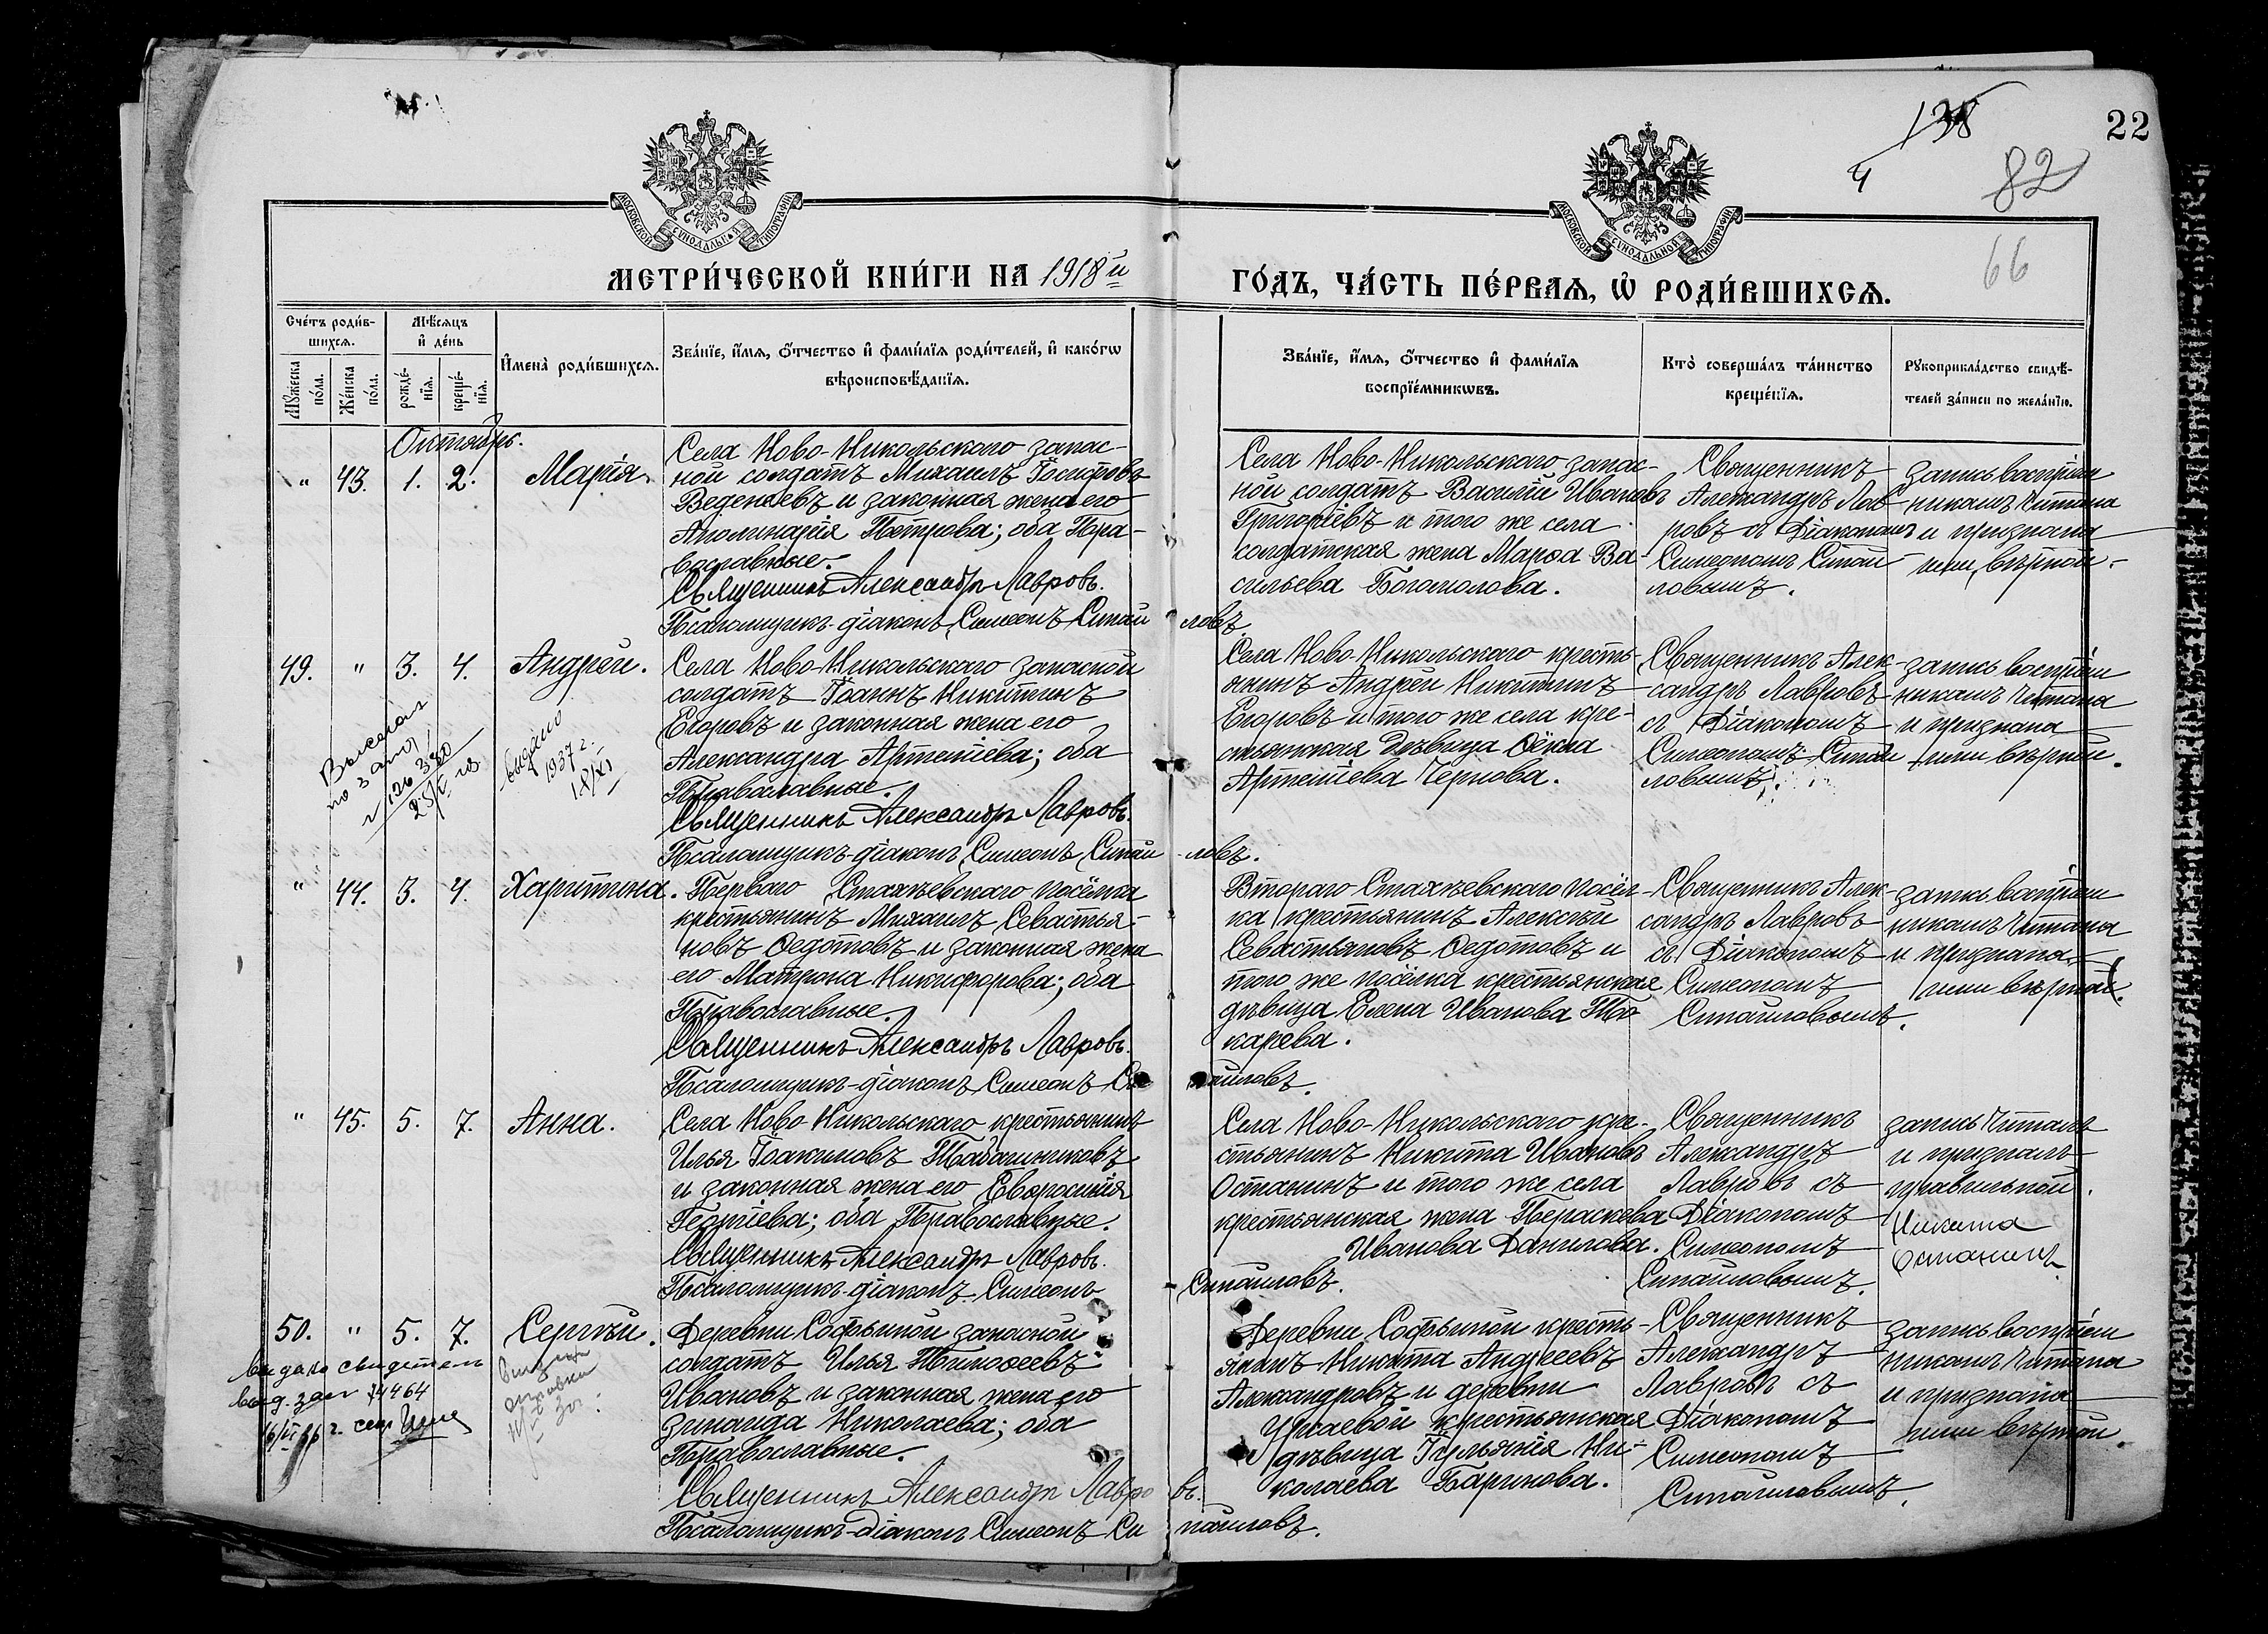 138
22
4
82
66
МОСКОВСКОЙ СѴНОДАЛЬНОЙ ТИПОГРАФІИ
МОСКОВСКОЙ СѴНОДАЛЬНОЙ ТИПОГРАФІИ
МЕТРИ́ЧЕСКОЙ КНИ́ГИ НА 1918й
ГО́ДЪ, ЧА́СТЬ ПЕ́РВАѦ, Ѡ҆ РОДИ́ВШИХСѦ.
Сче́тъ роди́в-
шихсѧ.
Мѹ́жеска по́ла.
Же́нска по́ла.
Мѣ́сѧцъ
и҆ де́нь
рожде́-
нїѧ.
креще́-
нїѧ.
И҆мена̀ роди́вшихсѧ.
Зва́нїе, и҆́мѧ, ѻ҆́тчество и҆ фами́лїѧ роди́телей, и҆ како́гѡ
вѣроисповѣ́данїѧ.
Зва́нїе, и҆́мѧ, ѻ҆́тчество и҆ фами́лїѧ
воспрїе́мникѡвъ.
Кто̀ соверша́лъ та́инство
креще́нїѧ.
Рѹкоприкла́дство свидѣ́-
телей за́писи по жела́нїю.
Октябрь.
" 43. 1. 2. Марія.
Села Ново-Никольского запас-
ной солдатъ Михаилъ
Веденеевъ и законная жена его
Аполинарія Петрова; оба Пра-
вославные.
Священникъ Александръ Лавровъ.
Псаломщикъ-діаконъ Симеонъ Сипай ловъ
Села Ново-Никольского запас-
ной солдатъ Василій Ивановъ
Григоріевъ и того же села
солдатская жена Марѳа Ва
сильева Богомолова.
Священникъ
Александръ Лав
ровъ съ Діакономъ
Симеономъ Сипай
ловымъ.
запись воспріем
никамъ читана
и признана
ими вѣрной.
49. " 3. 4. Андрей.
Села Ново-Никольского запасной
солдатъ Іоаннъ Никитинъ
Егоровъ и законная жена его
Александра Артеміева; оба
Православные.
Священникъ Александръ Лавровъ.
Псаломщикъ-діаконъ Симеонъ Сипай ловъ.
Села Ново-Никольского кресть-
янинъ Андрей Никитинъ
Егоровъ и того же села кре-
стьянская дѣвица Ѳёкла
Артеміева Чернова.
Священникъ Алек-
сандръ Лавровъ
съ Діакономъ
Симеономъ Сипай
ловымъ.
запись воспріем
никамъ читана
и признана
ими вѣрной.
выдано
1937 г.
" 44. 3. 4. Харитина.
Перваго Стахѣевскаго посёлка
крестьянинъ Михаилъ Севастья-
новъ Ѳедотовъ и законная жена
его Матрона Никифорова; оба
Православные.
Священникъ Александръ Лавровъ.
Псаломщикъ-діаконъ Симеонъ Си паиловъ.
Втораго Стахѣевскаго посёл-
ка крестьянинъ Алексѣй
Севастьяновъ Ѳедотовъ и
того же посёлка крестьянская
дѣвица Елена Иванова То
карева.
Священникъ Алек-
сандръ Лавровъ
съ Діакономъ
Симеономъ
Сипаиловымъ.
запись воспріем
никамъ читана
и признана
ими вѣрной.
" 45. 5. 7. Анна.
Села Ново-Никольского крестьянинъ
Илья Іоакимовъ Табашниковъ
и законная жена его Евфросинія
Георгіева; оба Православные.
Священникъ Александръ Лавровъ.
Псаломщикъ-діаконъ Симеонъ Сипаиловъ.
Села Ново-Никольского кре-
стьянинъ Никита Ивановъ
Останинъ и того же села
крестьянская жена Пераскева
Иванова Данилова.
Священникъ
Александръ
Лавровъ съ
Діакономъ
Симеономъ
Сипаиловымъ.
запись читалъ
и призналъ
правильной.
Никита
Останинъ
50. " 5. 7. Сергѣй.
Деревни Софьиной запасной
солдатъ Илья Тимоѳеевъ
Ивановъ и законная жена его
Зинаида Николаева; оба
Православные.
Священникъ Александръ Лавро въ.
Псаломщикъ-діаконъ Симеонъ Си паиловъ.
Деревни Софьиной кресть-
янинъ Никита Андреевъ
Александровъ и деревни
крестьянская
дѣвица Іульянія Ни-
колаева Баринова.
Священникъ
Александръ
Лавровъ съ
Діакономъ
Симеономъ
Сипаиловымъ.
запись воспріем
никамъ читана
и признана
ими вѣрной.